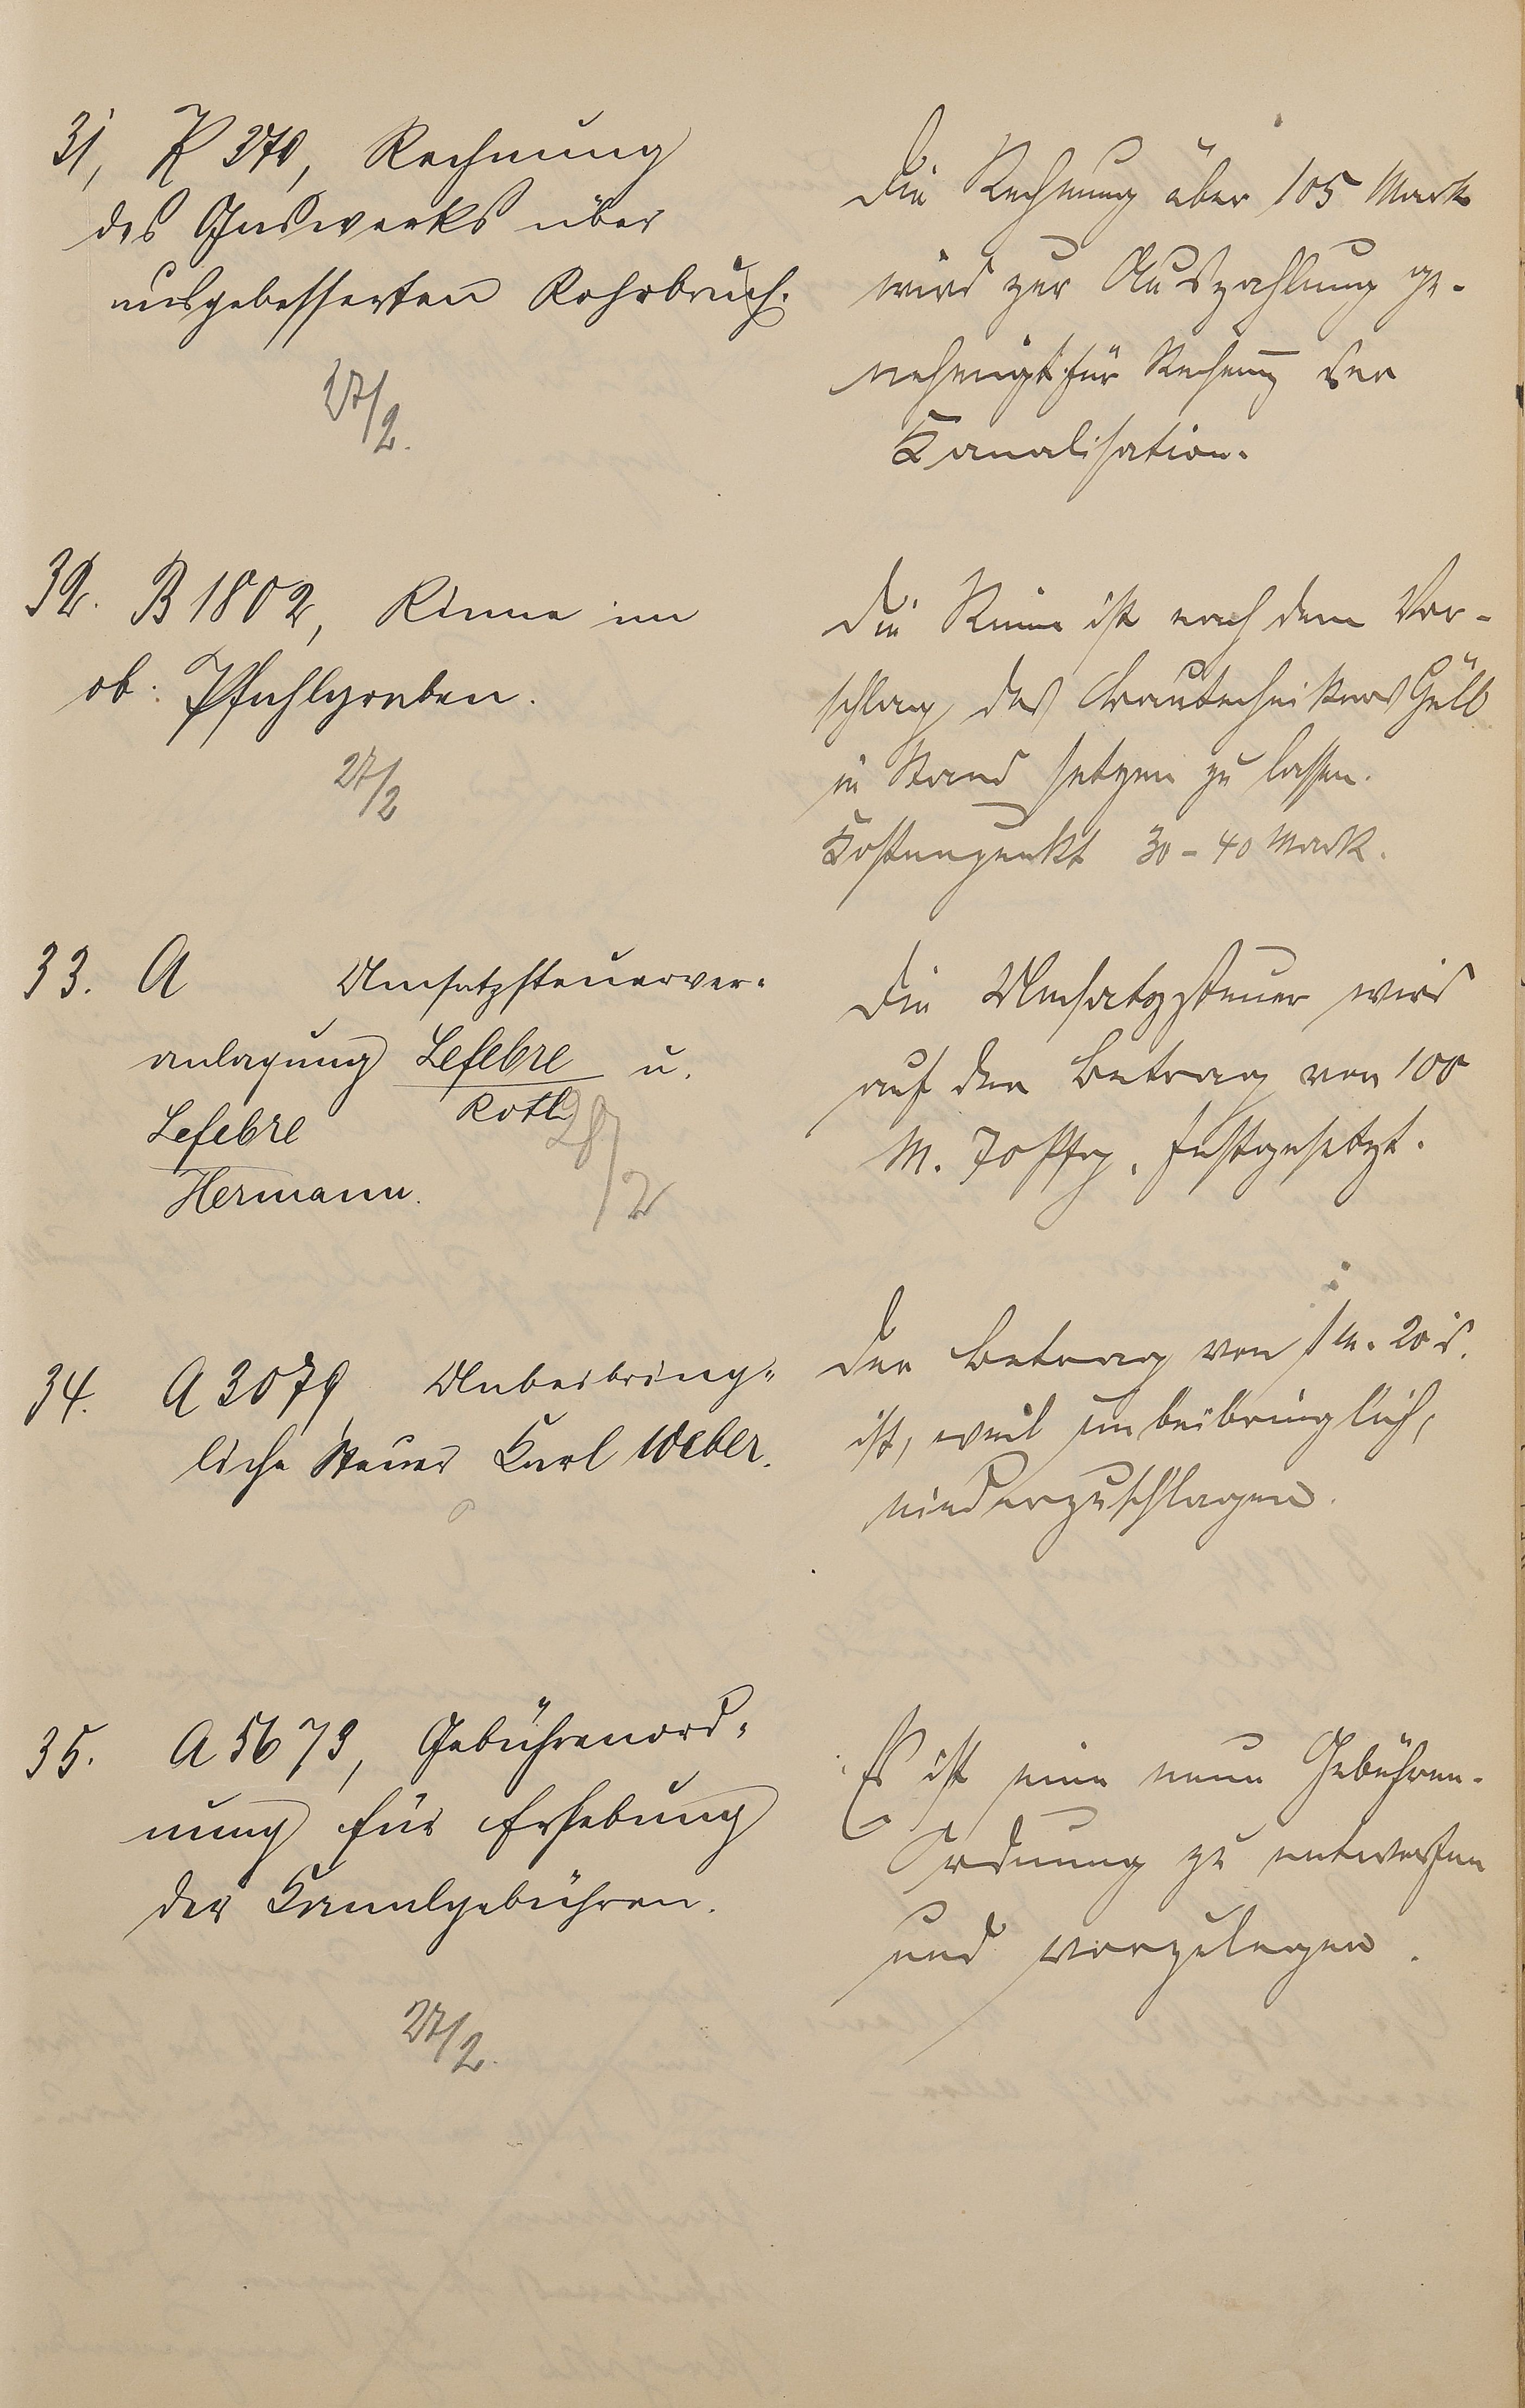 31, K 370, Rechnung
des Gaswerks über
ausgebesserten Rohrbruch.
27/2.
Die Rechnung über 105 Mark
wird zur Auszahlung ge-
nehmigt für Rechnung der
Kanalisation.
32. B 1802, Rinne im
ob. Pfuhlgraben.
27/2
Die Rinne ist nach dem Vor-
schlag des Bautechnikers
in Stand setzen zu lassen.
Kostenpunkt 30-40 Mark.
33. A Umsatzsteuerver-
anlagung Lefebre u.
Roth
Lefebre
Hermann.
28/2
Die Umsatzsteuer wird
auf den Betrag von 100
M. 70 Pfg. festgesetzt.
34. A 3079, Unbeibring-
liche Steuer Karl Weber.
Der Betrag von 1 M. 20
ist, weil unbeibringlich,
niederzuschlagen.
35. A 5673, Gebührenord-
nung für Erhebung
der Kanalgebühren.
27/2.
Es ist eine neue Gebühren-
Ordnung zu entwerfen
und vorzulegen.